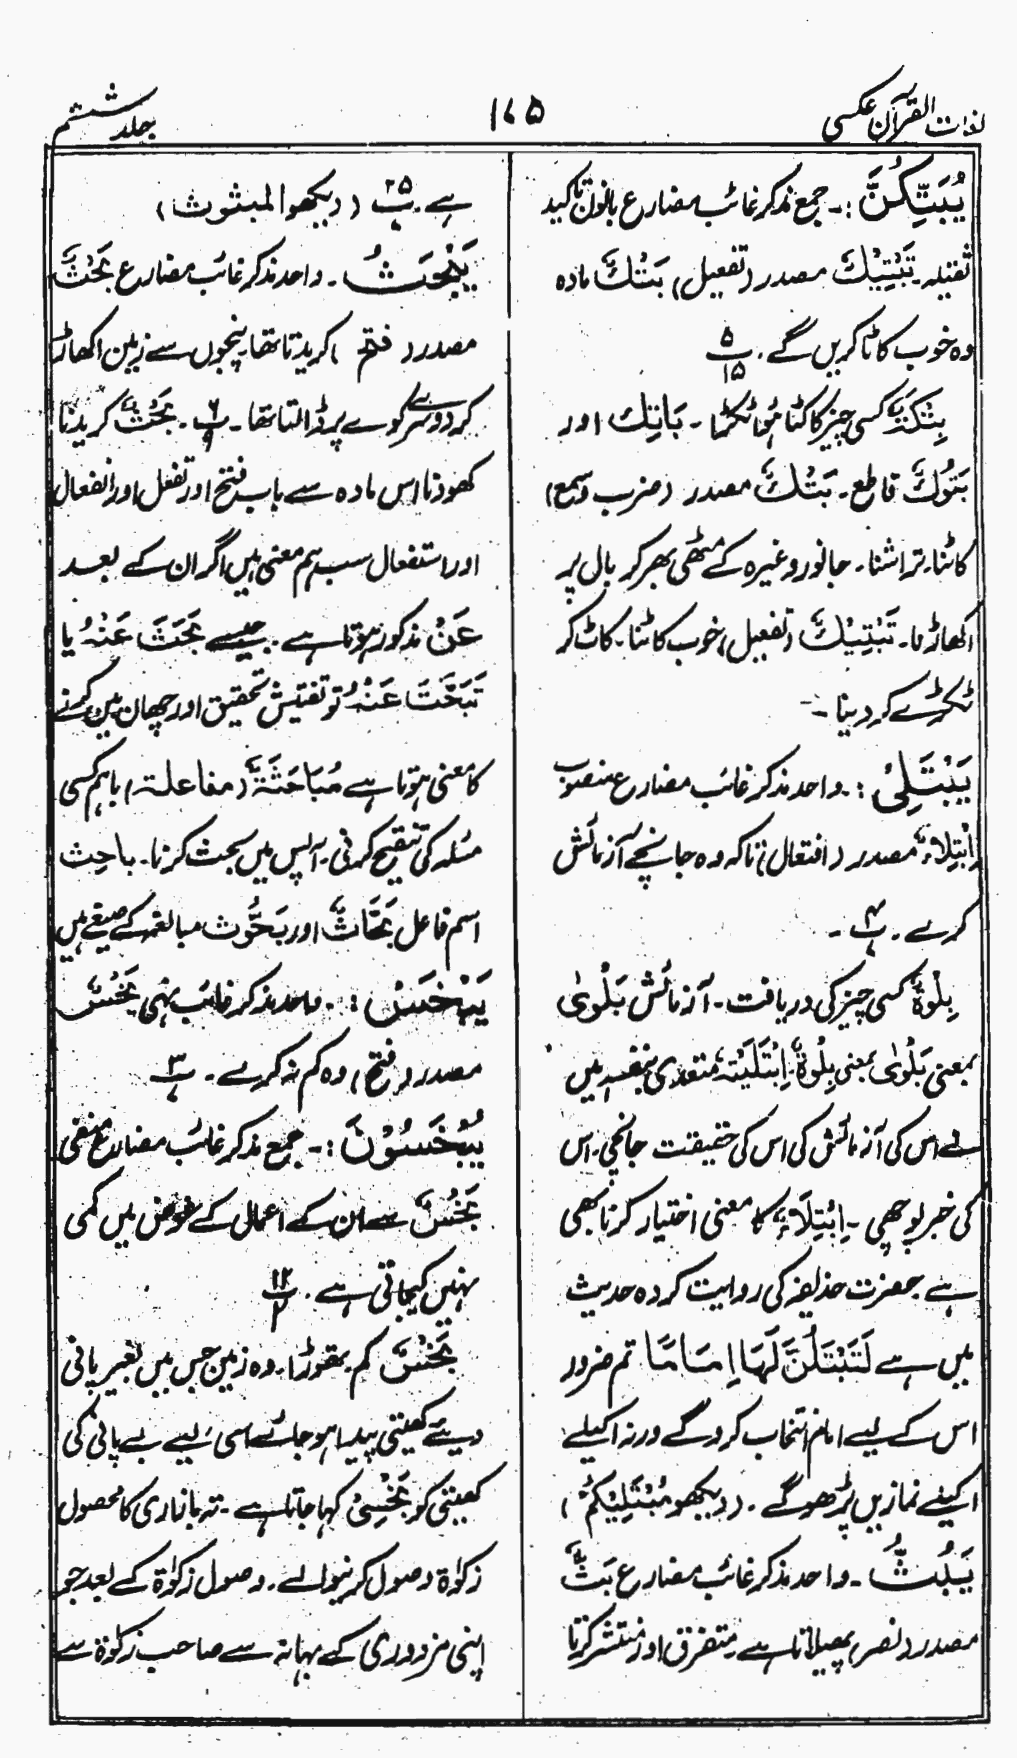 لغات القرآن عکسی
۱۷۵
جلد ششم
یُبَتِّکُنَّ :۔ جمع مذکر غائب مضارع بانون تاکید
ثقیلہ۔ تَبْتِیْکٌ مصدر (تفعیل) بَتْکٌ مادہ
وہ خوب کاٹا کریں گے۔ پ ۵ ۱۵
بِتْکَۃٌ کسی چیز کا کٹا ہُوا ٹکڑا۔ بَاتِکٌ اور
بَتُوْکٌ قاطع۔ بَتْکٌ مصدر (ضرب و سمع)
کاٹنا۔ تراشنا۔ جانور وغیرہ کے مٹھی بھر کر بال پر
اکھاڑنا۔ تَبْتِیْکٌ (تفعیل) خوب کاٹنا۔ کاٹ کر
ٹکڑے کر دینا۔
یَبْتَلِیَ :۔ واحد مذکر غائب مضارع منصوب
اِبْتِلَاءٌ مصدر (افتعال) تاکہ وہ جانچے آزمائش
کرے۔ پ ۴
بِلْوَۃٌ کسی چیز کی دریافت۔ آزمائش بَلْوٰی
بمعنی بَلْوٰی بمعنی بِلْوَۃٌ۔ اِبْتَلَیْتَہٗ متعدی بنفسہٖ میں
نے اس کی آزمائش کی اس کی حقیقت جانچی۔ اس
کی خبر پوچھی۔ اِبْتِلَاءٌ کا معنی اختیار کرنا بھی
ہے حضرت حذیفہ کی روایت کردہ حدیث
میں ہے لَتَبْتَلُنَّ لَہَا اِمَامًا تم ضرور
اس کے لیے امام انتخاب کرو گے ورنہ اکیلے
اکیلے نمازیں پڑھو گے۔ (دیکھو مُبْتَلِیْکُمْ)
یَبُثُّ ۔ واحد مذکر غائب مضارع بَثٌّ
مصدر (نصر) پھیلاتا ہے۔ متفرق اور منتشر کرتا
ہے۔ پ ۲۵ (دیکھو المبثوث)
یَبْحَثُ ۔ واحد مذکر غائب مضارع بَحْثٌ
مصدر (فتح) کریدتا تھا۔ پنجوں سے زمین اکھاڑ
کر دوسرے کوے پر ڈالتا تھا۔ پ ۶ ۔ بَحْثٌ کریدنا
کھودنا اس مادہ سے باب فتح اور تفعل اور انفعال
اور استفعال سب ہم معنی ہیں اگر ان کے بعد
عَنْ مذکور ہوتا ہے۔ جیسے بَحَثَ عَنْہُ یا
تَبَحَّثَ عَنْہُ تو تفتیش تحقیق اور چھان بین کرنے
کا معنی ہوتا ہے مُبَاحَثَۃٌ (مفاعلۃ) باہم کسی
مسئلہ کی تنقیح کرنی۔ آپس میں بحث کرنا۔ باحِث
اسم فاعل بَحَّاثٌ اور بَحُّوث مبالغہ کے صیغے ہیں
یَبْخَسْ :۔ واحد مذکر غائب نہی بَخْسٌ
مصدر (فتح) وہ کم نہ کرے۔ پ ۳
یُبْخَسُوْنَ :۔ جمع مذکر غائب مضارع منفی
بَخْسٌ سے ان کے اعمال کے عوض میں کمی
نہیں کیجاتی ہے۔ پ ۱۲ ۲
بَخْسٌ کم۔ تھوڑا۔ وہ زمین جس میں بغیر پانی
دیئے کھیتی پیدا ہو جائے اسی لیے بے پانی کی
کھیتی کو بَخْسِیٌّ کہا جاتا ہے۔ تہ بازاری کا محصول
زکوٰۃ وصول کرنیوالے۔ وصول زکوٰۃ کے بعد جو
اپنی مزدوری کے بہانہ سے صاحب زکوٰۃ سے